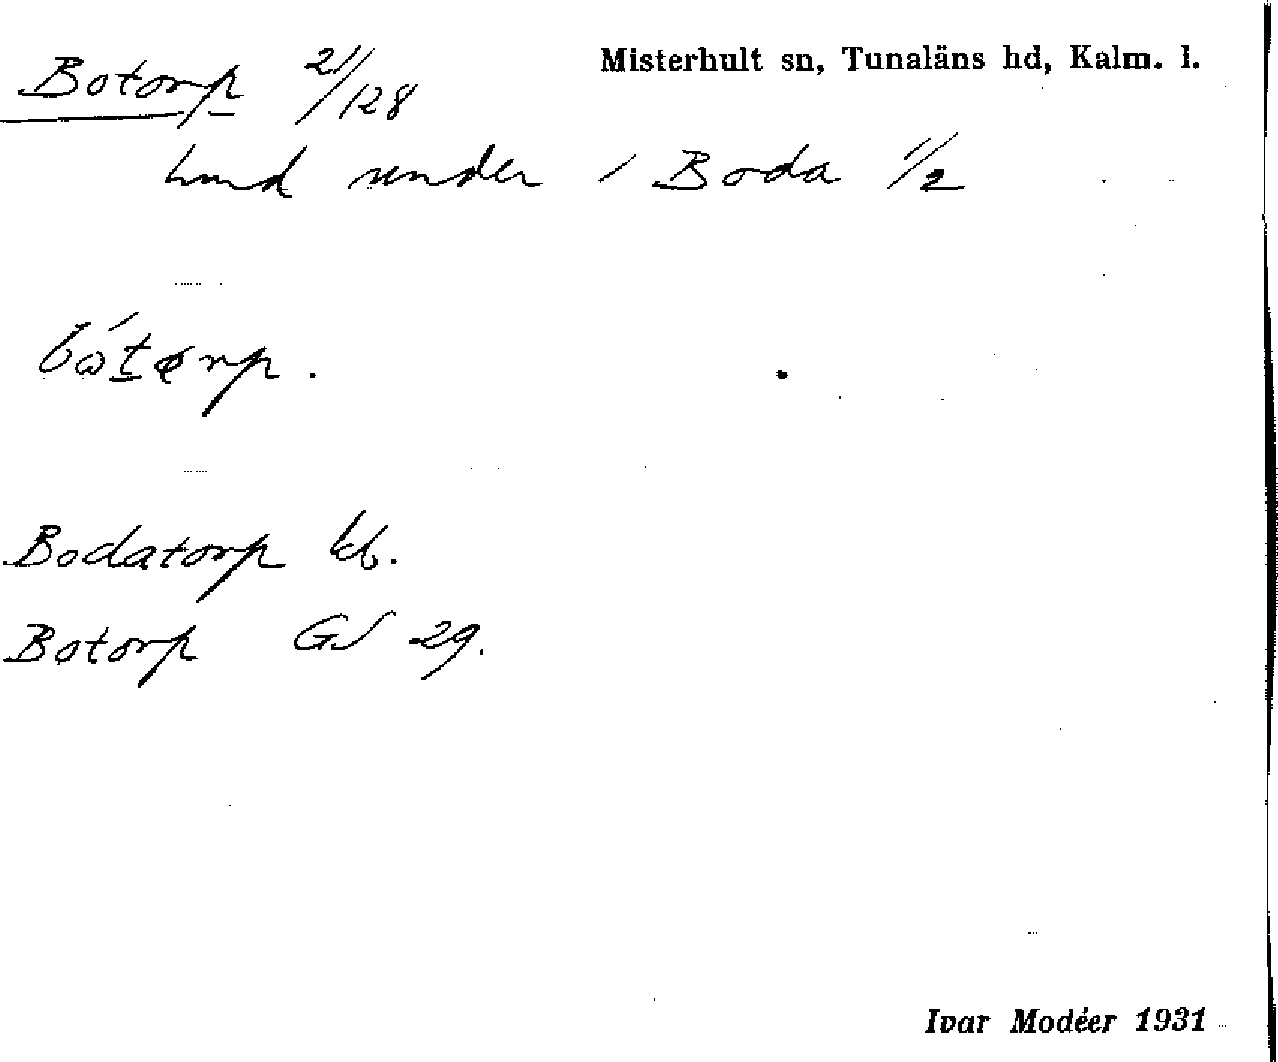 Botorp 21/128 Misterhult sn, Tunaläns hd, Kalm. l.
under 1 Boda 1/2
Bodatorp kb.
Botorp GS 29.
Ivar Modéer 1931